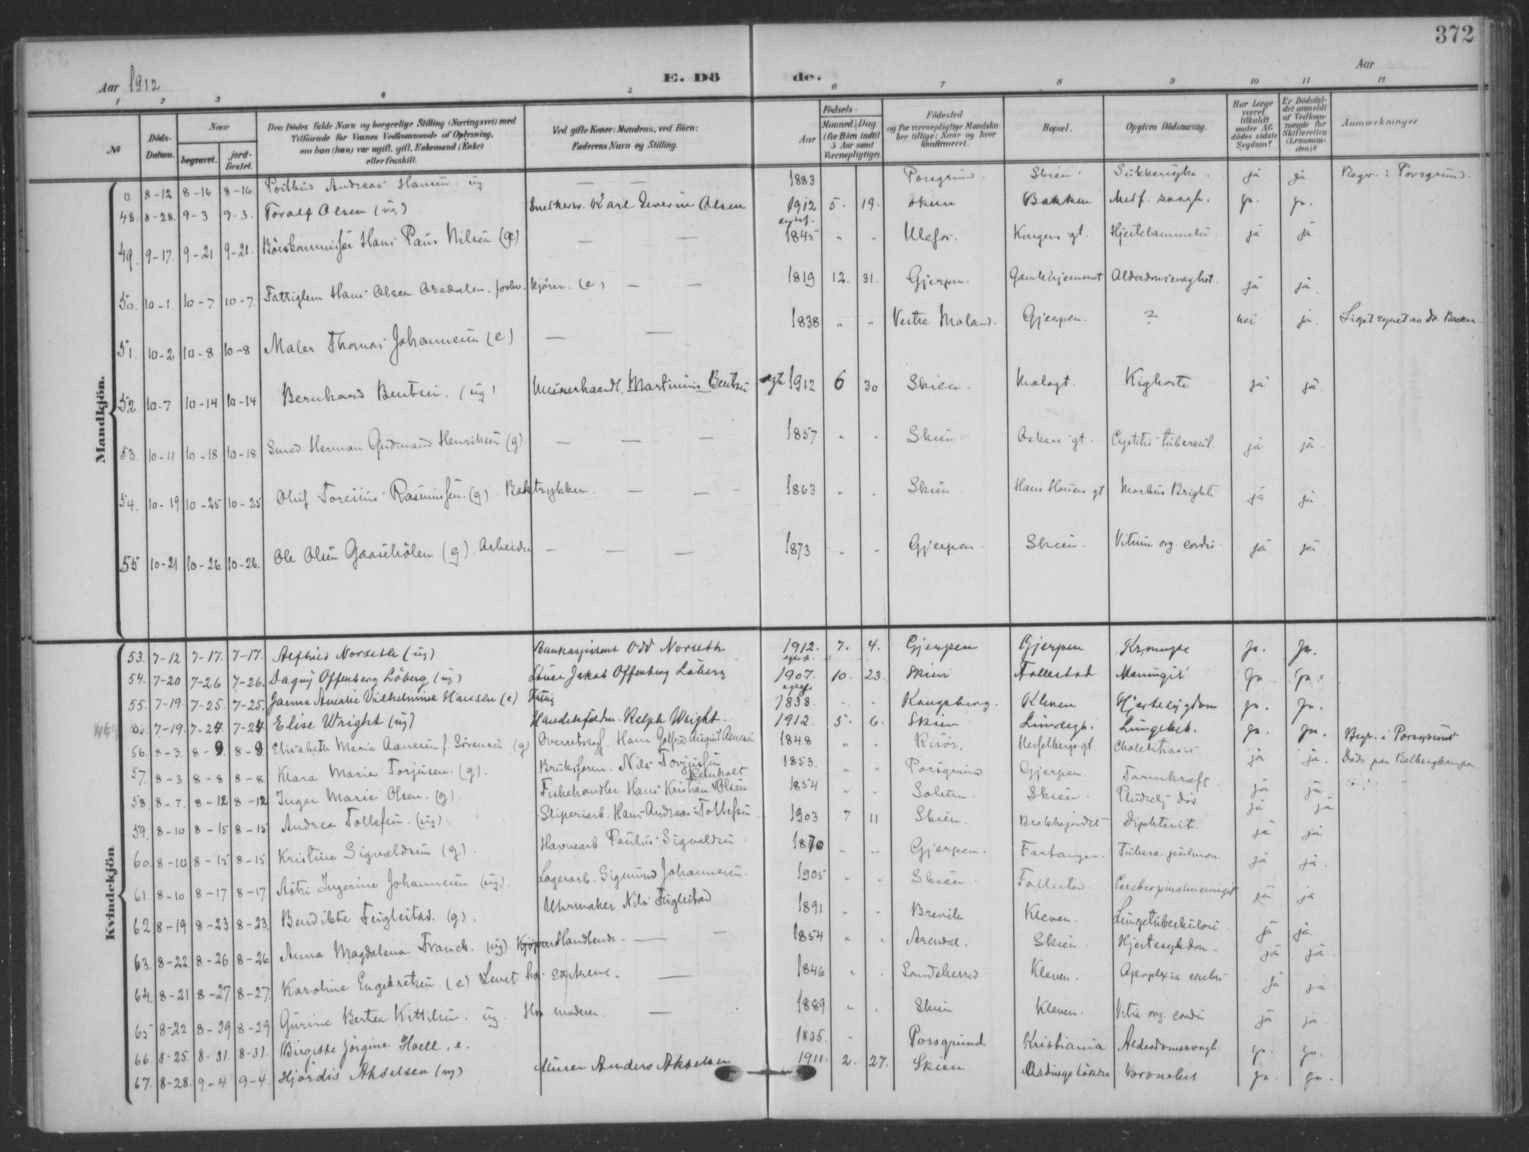 372
Aar 1912 E. Døde. Aar
1 2 3 4 5 6 7 8 9 10 11 12
No Døds-Datum. Naar begravet. jordfæstet. Den Dødes fulde Navn og borgerlige Stilling (Næringsvei) med Tilføiende for Voxnes Vedkommende af Oplysning, om han (hun) var ugift, gift, Enkemand (Enke) eller fraskilt. Ved gifte Koner: Mandens, ved Børn: Faderens Navn og Stilling. Aar Fødsels- Maaned. Dag (for Børn indtil 5 Aar samt Værnepligtige). Fødested og for værnepligtige Mandskaber tillige: Naar og hvor konfirmeret. Bopæl. Opgiven Dødsaarsag. Har Læge været tilkaldt under Afdødes sidste Sygdom? Er Dødsfaldet anmeldt af Vedkommende for Skifteretten (Lensmanden)? Anmærkninger
Mandkjön.
0. 8-12 8-16 8-16 Postbud Andreas Hansen. ug — — 1883 Porsgrund. Skien. Sukkersyke. ja ja Begr. i Porsgrund.
48. 8-28. 9-3 9-3. Toralf Olsen (ug) Snedkersv. Karl Severin Olsen 1912 5. 19. Skien Bakken Medf. svagh. ja. ja.
49. 9-17. 9-21 9-21. Hans Paus Nilsen (g) — — 1845 " " Ulefos. Kongens gt. Hjertelammelse. ja ja
50. 10-1. 10-7 10-7. Fattiglem Hans Olsen (e) — — 1819 12. 31. Gjerpen. Gamlehjemmet Alderdomssvaghet. ja ja.
51. 10-2 10-8 10-8 Maler Thomas Johannesen (e) — — 1838 " " Vestre Moland. Gjerpen. ? nei ja
52. 10-7 10-14 10-14 Bernhard Bentsen. (ug) Martinius Bentsen egte 1912 6 30 Skien. Kighoste ja ja.
53. 10-11 10-18 10-18 Smed Herman Gudmand Henriksen (g). — — — 1857 " " Skien. gt. Cystitis tubercul. ja ja.
54. 10-19 10-25 10-25 Oluf Rasmussen. (g). Boktrykker. — — 1863 " " Skien Hans Houens gt Morbus Brighti ja ja
55 10-21 10-26 10-26. Ole Olsen Gaasehölen (g). Arbeider — — — 1873 " " Gjerpen. Skien. Vitium org. cordis. ja ja.
Kvindekjön
53. 7-12 7-17. 7-17. Norseth (ug) Odd Norseth 1912. 7. 4. Gjerpen Gjerpen Krampe ja. ja.
54. 7-20 7-26 7-26. Dagny Offenberg Löberg (ug) Jakob Offenberg Löberg 1907. 10. 23. Skien Follestad Meningit ja. ja.
55. 7-19. 7-25. 7-25. Amalie Vilhelmine Hansen (e) Fattig 1838. Kongsberg. Kleven Hjertesygdom ja. ja.
7-19. 7-24. 7-24 Elise Wright (ug) Ralph Wright. 1912. 5. 6. Skien Lundegt. Lungebet. ja. ja. Begr. i Porsgrund
56. 8-3. 8-9. 8-9 Elisabeth Marie Aanesen f. Sörensen (g) Hans Gotfred August Aanesen 1848 " " Risör. Hesselbergs gt. ja ja.
57. 8-3 8-8 8-8 Klara Marie Torjusen. (g). Nils Torjusen 1853. " " Porsgrund Gjerpen. Tarmkræft. ja ja
58. 8-7. 8-12 8-12 Inger Marie Olsen. (g). Fiskehandler Hans Kristian Olsen 1854 " " Solum. Skien. Pludselig död ja ja
59. 8-10 8-15 8-15 Andrea Tollefsen. (ug). Sliperiarb. Hans Andreas Tollefsen. 1903 7 11 Skien. Brekkejordet Difterit. ja ja
60. 8-10 8-15 8-15. Kristine Sigvaldsen (g). Havnearb. Paulus Sigvaldsen 1870 " " Gjerpen. Tuberc. pulmon. ja ja.
61. 8-10 8-17 8-17. Ingerine Johannesen (ug). Lagerarb. Sigmund Johannesen. 1905 " " Skien. Follestad. ja ja
62. 8-19 8-23 8-23. Bendikte Fuglestad. (g). Uhrmaker Nils Fuglestad 1891 " " Brevik Kleven. Lungetuberkulose ja ja.
63. 8-22. 8-26 8-26. Anna Magdalena Franck. (ug). Handlende. — — 1854 " " Arendal. Skien. Hjertesykdom. ja ja.
64. 8-21 8-27 8-27. Karoline Engebretsen (e) Levet hos — 1846 " " Sandeherred Kleven. Apoplexia cerebri ja ja
65 8-22 8-29 8-29 Gurine Bertea Kittilsen. ug. Hos moderen. — 1889 " " Skien Kleven. Vitium org. cordis ja ja
66. 8-25. 8-31. 8-31. Birgitte Jörgine Hoell. e. 1835. Porsgrund Kristiania Alderdomssvagh. ja. ja.
67. 8-28. 9-4 9-4. Hjördis Akselsen (ug) Murer Anders Akselsen 1911. 2. 27. Skien Bronchit ja. ja.